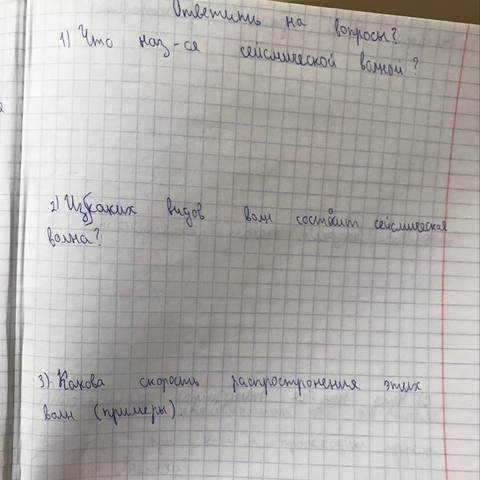 Ответить на вопросы?
1) Что наз-ся сейсмической волной?
2) Из каких видов волн состоит сейсмическая
волна?
3). Какова скорость распростронения этих
волн (примеры).